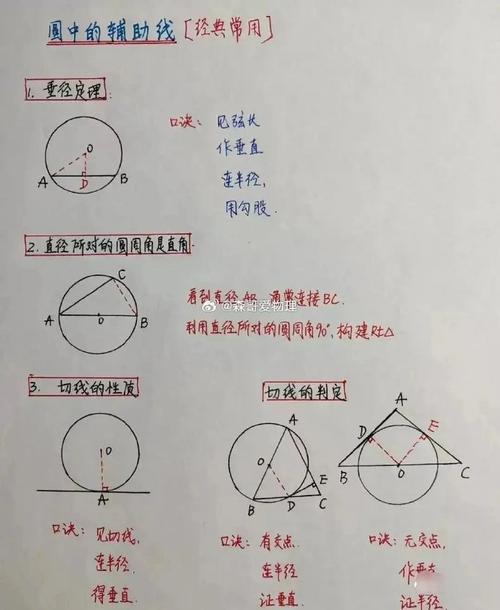 圆中的辅助线[经典常用]
1. 垂径定理
口诀: 见弦长
作垂直
连半径,
用勾股.
O
A
D
B
2. 直径所对的圆周角是直角.
C
A
O
B
看到直径AB, 通常连接BC.
@森哥爱物理
利用直径所对的圆周角90°, 构建Rt△
3. 切线的性质
切线的判定
O
A
A
O
E
B
D
C
A
D
E
B
O
C
口诀: 见切线,
连半径
得垂直.
口诀: 有交点.
连半径
证垂直
口诀: 无交点.
作垂直
证半径